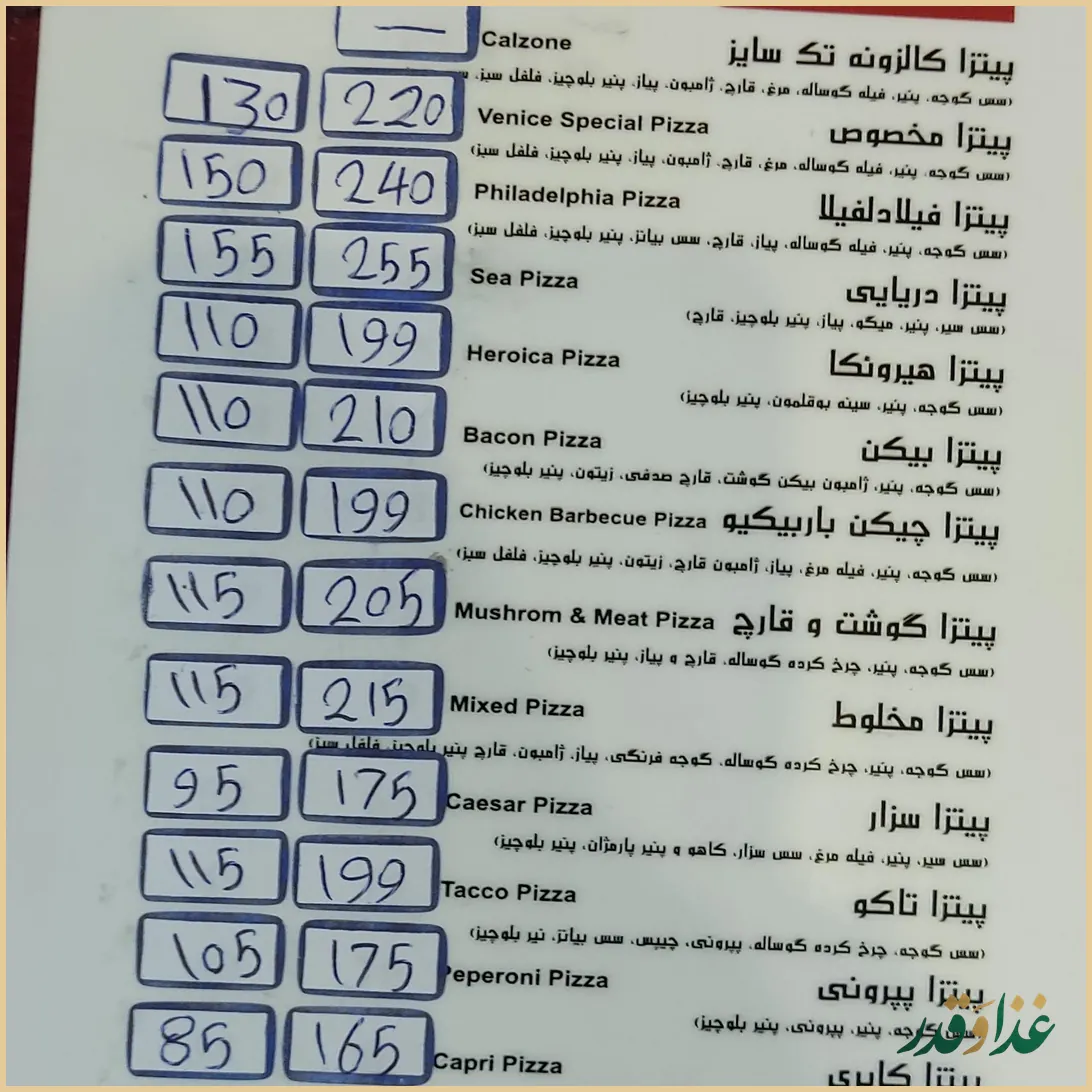 — Calzone پیتزا کالزونه تک سایز
(سس گوجه، پنیر، فیله گوساله، مرغ، قارچ، ژامبون، پیاز، پنیر بلوچیز، فلفل سبز،
130 220 Venice Special Pizza پیتزا مخصوص
(سس گوجه، پنیر، فیله گوساله، مرغ، قارچ، ژامبون، پیاز، پنیر بلوچیز، فلفل سبز)
150 240 Philadelphia Pizza پیتزا فیلادلفیلا
(سس گوجه، پنیر، فیله گوساله، پیاز، قارچ، سس بیانز، پنیر بلوچیز، فلفل سبز)
155 255 Sea Pizza پیتزا دریایی
(سس سیر، پنیر، میگو، پیاز، پنیر بلوچیز، قارچ)
110 199 Heroica Pizza پیتزا هیرونکا
(سس گوجه، پنیر، سینه بوقلمون، پنیر بلوچیز)
110 210 Bacon Pizza پیتزا بیکن
(سس گوجه، پنیر، ژامبون بیکن گوشت، قارچ صدفی، زیتون، پنیر بلوچیز)
110 199 Chicken Barbecue Pizza پیتزا چیکن باربیکیو
(سس گوجه، پنیر، فیله مرغ، پیاز، ژامبون قارچ، زیتون، پنیر بلوچیز، فلفل سبز)
115 205 Mushrom & Meat Pizza پیتزا گوشت و قارچ
(سس گوجه، پنیر، چرخ کرده گوساله، قارچ و پیاز، پنیر بلوچیز)
115 215 Mixed Pizza پیتزا مخلوط
(سس گوجه، پنیر، چرخ کرده گوساله، گوجه فرنگی، پیاز، ژامبون، قارچ پنیر بلوچیز، فلفل سبز)
95 175 Caesar Pizza پیتزا سزار
(سس سیر، پنیر، فیله مرغ، سس سزار، کاهو و پنیر پارمژان، پنیر بلوچیز)
115 199 Tacco Pizza پیتزا تاکو
(سس گوجه، چرخ کرده گوساله، پپرونی، چیپس، سس بیانز، نیر بلوچیز)
105 175 Peperoni Pizza پیتزا پپرونی
(سس گوجه، پنیر، پپرونی، پنیر بلوچیز)
85 165 Capri Pizza پیتزا کاپری
غذا و قدر